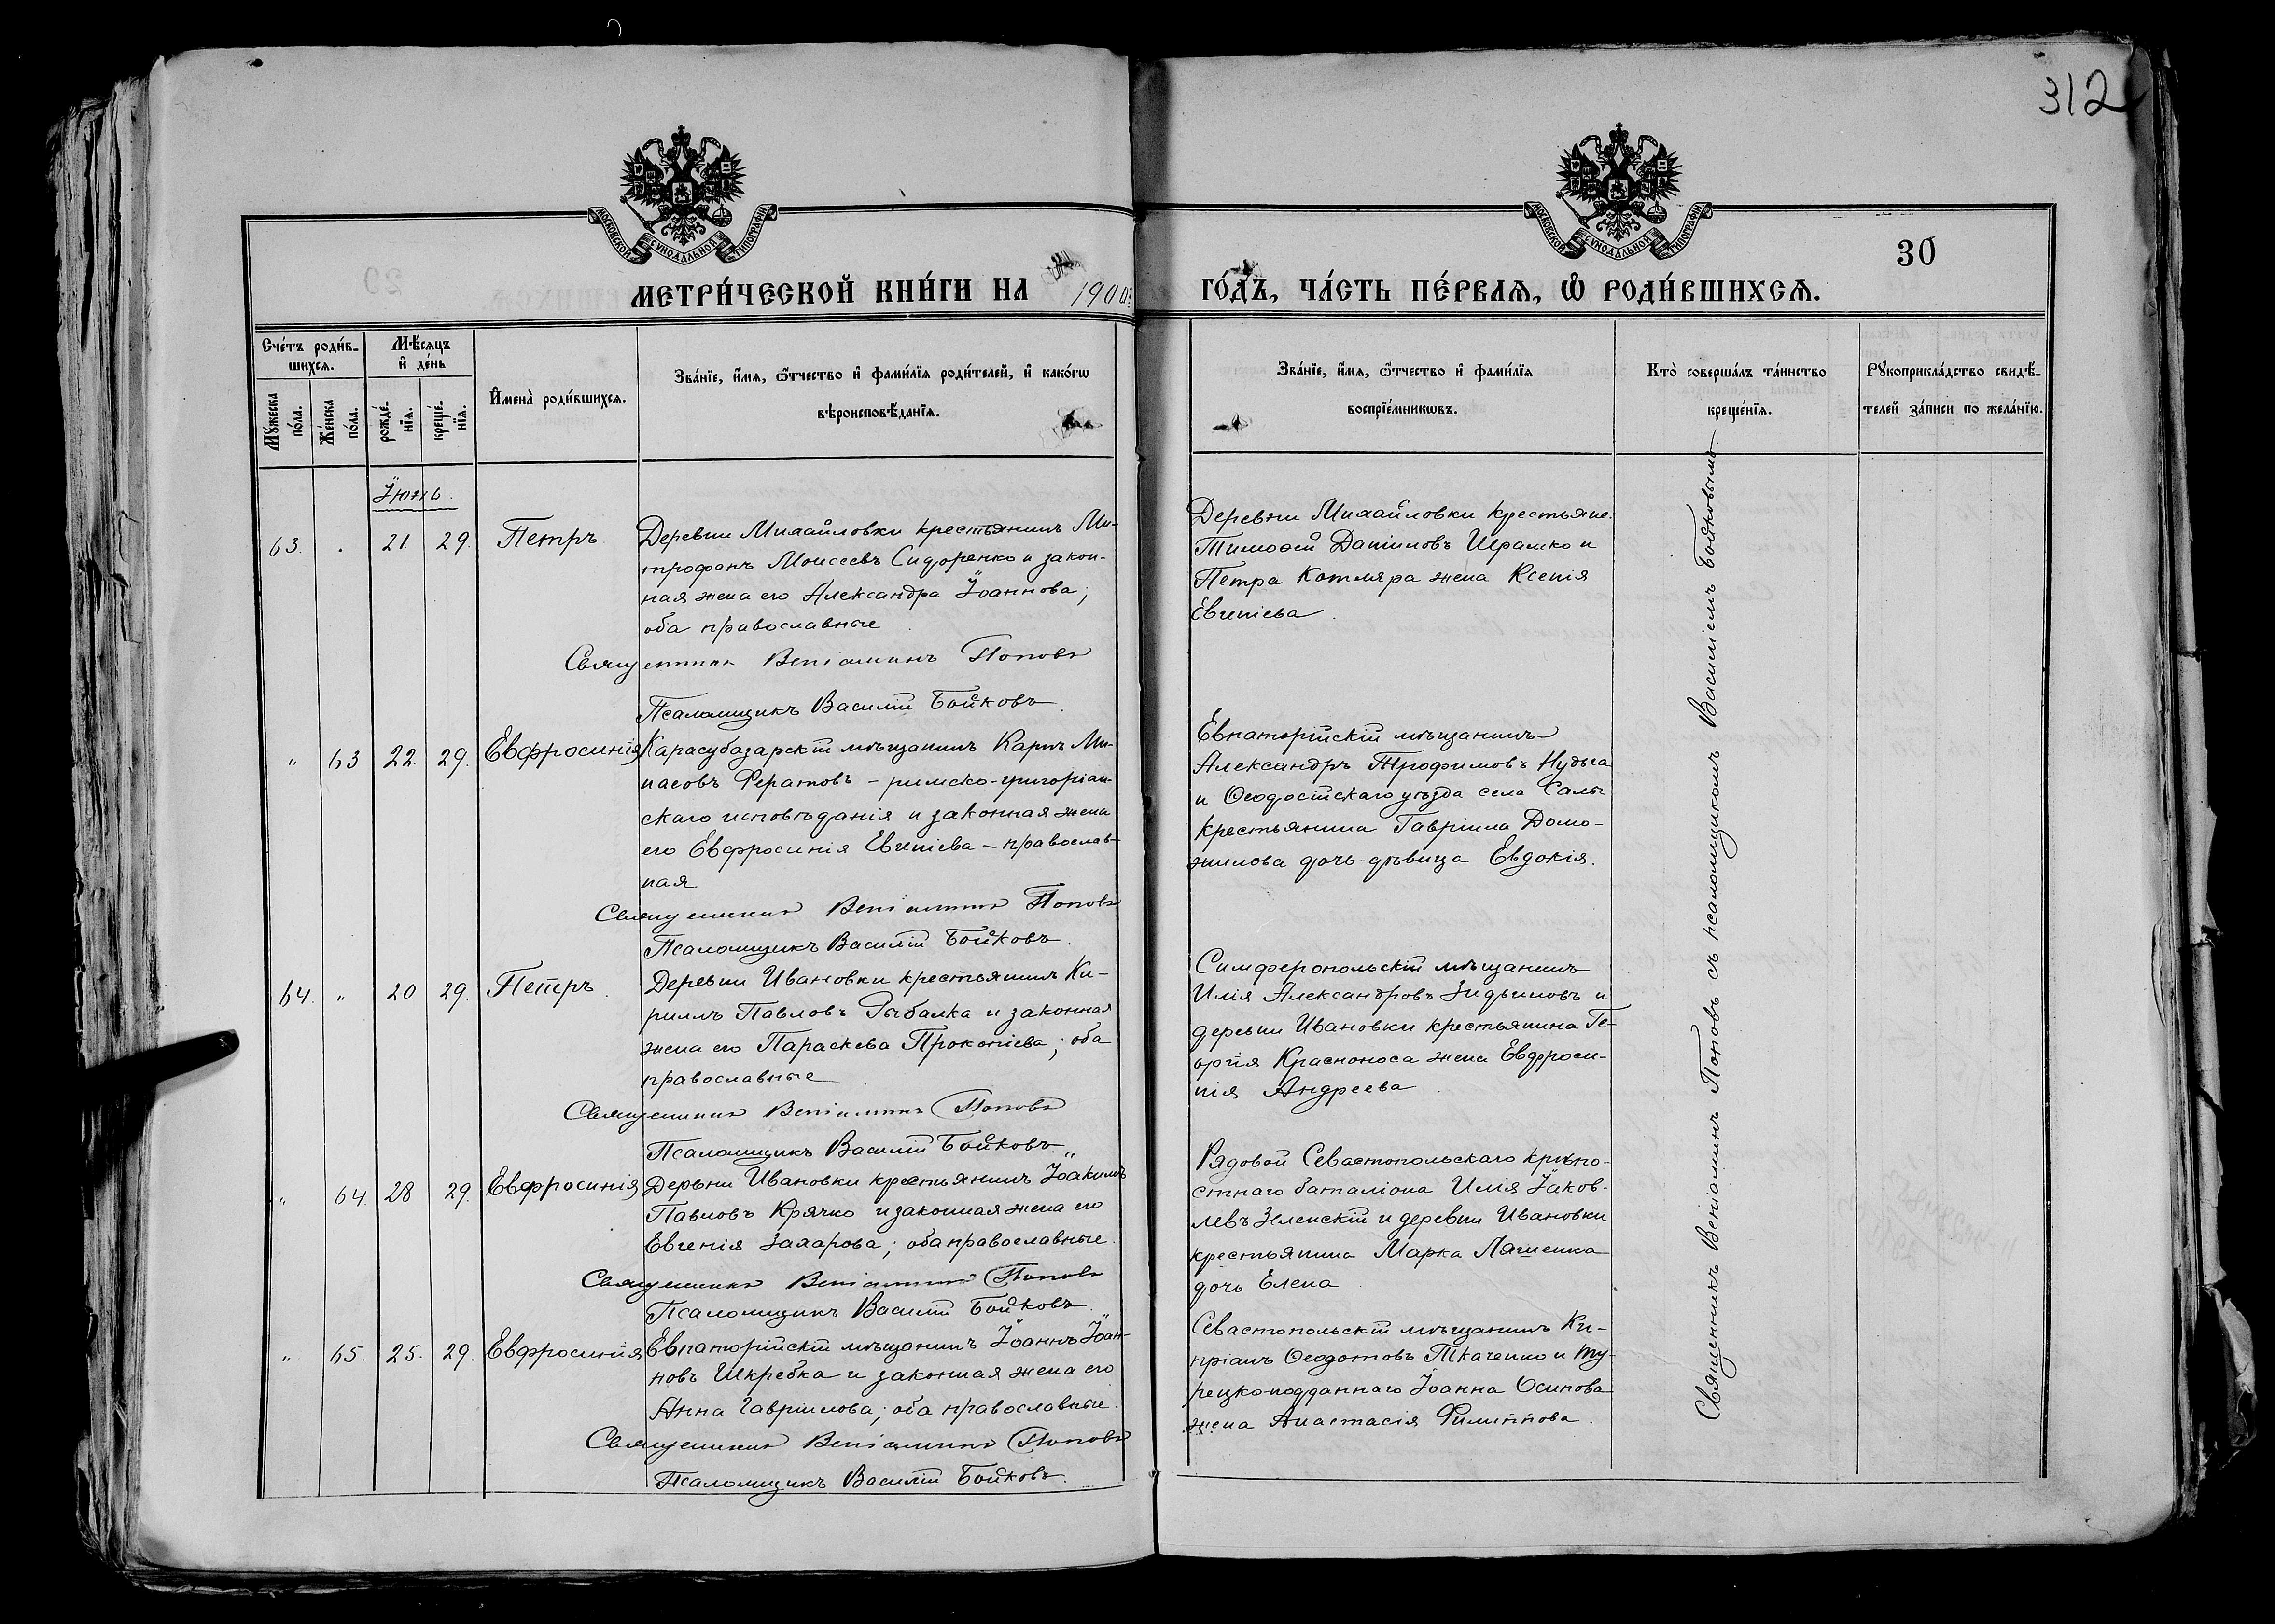 312
МОСКОВСКОЙ СУНОДАЛЬНОЙ ТИПОГРАФІИ
МОСКОВСКОЙ СУНОДАЛЬНОЙ ТИПОГРАФІИ
30
МЕТРИ́ЧЕСКОЙ КНИ́ГИ НА 1900
ГО́ДЪ, ЧА́СТЬ ПЕ́РВАѦ, Ѡ РОДИ́ВШИХСѦ.
Сче́тъ роди́в-
шихсѧ.
Мѣ́сѧцъ
и҆ де́нь
Мꙋ́жеска
по́ла.
Же́нска
по́ла.
рожде́-
нїѧ.
креще́-
нїѧ.
И҆мена̀ роди́вшихсѧ.
Зва́нїе, и҆́мѧ, ѻ҆́тчество и҆ фами́лїѧ роди́телей, и҆ како́гѡ
вѣроисповѣ́данїѧ.
Зва́нїе, и҆́мѧ, ѻ҆́тчество и҆ фами́лїѧ
воспрїе́мникѡвъ.
Кто̀ соверша́лъ та́инство
креще́нїѧ.
Рꙋкоприкла́дство свидѣ́-
телей за́писи по жела́нїю.
Іюнь.
63. . 21. 29. Петръ. Деревни Михайловки крестьянинъ Ми-
трофанъ Моисеевъ Сидоренко и закон-
ная жена его Александра Іоаннова;
оба православные
Священникъ Веніаминъ Поповъ
Псаломщикъ Василій Бойковъ.
Деревни Михайловки крестьяне.
Тимоѳей Даниловъ Ирашко и
Петра Котляра жена Ксенія
Евгеніева.
" 63 22. 29. Евфросинія Карасубазарскій мѣщанинъ Карпъ Ми-
насовъ Фератовъ – римско-григоріан-
скаго исповѣданія и законная жена
его Евфросинія Евгеніева – православ-
ная
Священникъ Веніаминъ Поповъ
Псаломщикъ Василій Бойковъ.
Евпаторійскій мѣщанинъ
Александръ Трофимовъ Нудьга
и Ѳеодосійскаго уѣзда села Салы
крестьянина Гавріила Домо-
жилова дочь-дѣвица Евдокія.
64. " 20 29. Петръ. Деревни Ивановки крестьянинъ Ки-
риллъ Павловъ Рыбалка и законная
жена его Параскева Прокопіева; оба
православные
Священникъ Веніаминъ Поповъ
Псаломщикъ Василій Бойковъ.
Симферопольскій мѣщанинъ
Илія Александровъ Зидьиловъ и
деревни Ивановки крестьянина Ге-
оргія Красноноса жена Евфроси-
нія Андреева
" 64. 28 29. Евфросинія Деревни Ивановки крестьянинъ Іоакимъ
Павловъ Крячко и законная жена его
Евгенія Захарова; оба православные.
Священникъ Веніаминъ Поповъ
Псаломщикъ Василій Бойковъ.
Рядовой Севастопольскаго крѣпо-
стнаго баталіона Илія Іаков-
левъ Зеленскій и деревни Ивановки
крестьянина Марка Ляшенка
дочь Елена
" 65. 25. 29. Евфросинія Евпаторійскій мѣщанинъ Іоаннъ Іоан-
новъ Шкребка и законная жена его
Анна Гавріилова; оба православные.
Священникъ Веніаминъ Поповъ
Псаломщикъ Василій Бойковъ.
Севастопольскій мѣщанинъ Ки-
пріанъ Ѳеодотовъ Ткаченко и ту-
рецко-подданнаго Іоанна Осипова
жена Анастасія Филиппова.
Священникъ Веніаминъ Поповъ съ псаломщикомъ Василіемъ Бойковымъ